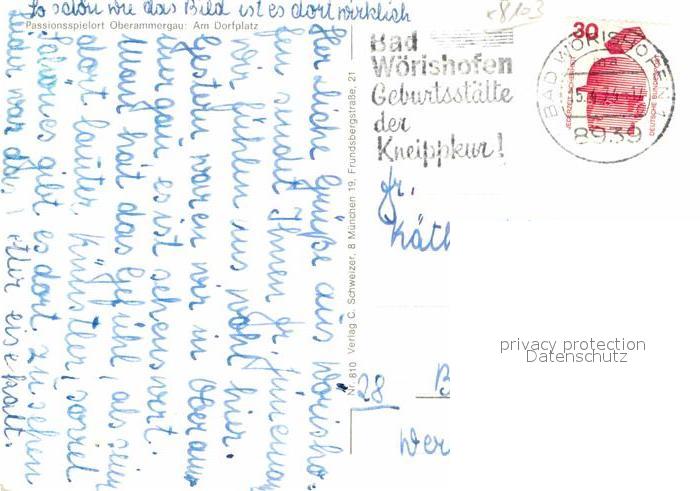 So schön wie das Bild ist es dort wirklich
Passionsspielort Oberammergau: Am Dorfplatz
Herzliche Grüße aus Wörisho-
fen sendet Ihnen Fr.
Wir fühlen uns wohl hier.
Gestern waren wir in Oberam-
mergau es ist sehenswert.
Man hat das Gefühl, als sein
dort lauter Künstler, soviel
schönes gibt es dort zu sehen
war da, aber eiskalt.
Nr. 810 Verlag C. Schweizer, 8 München 19, Frundsbergstraße, 21
8103
Bad
Wörishofen
Geburtsstätte
der
Kneippkur!
30
JEDERZEIT SICHERHEIT
DEUTSCHE BUNDESPOST
BAD WÖRISHOFEN 1
8939
Fr.
Käth
28
B
Wer
privacy protection
Datenschutz